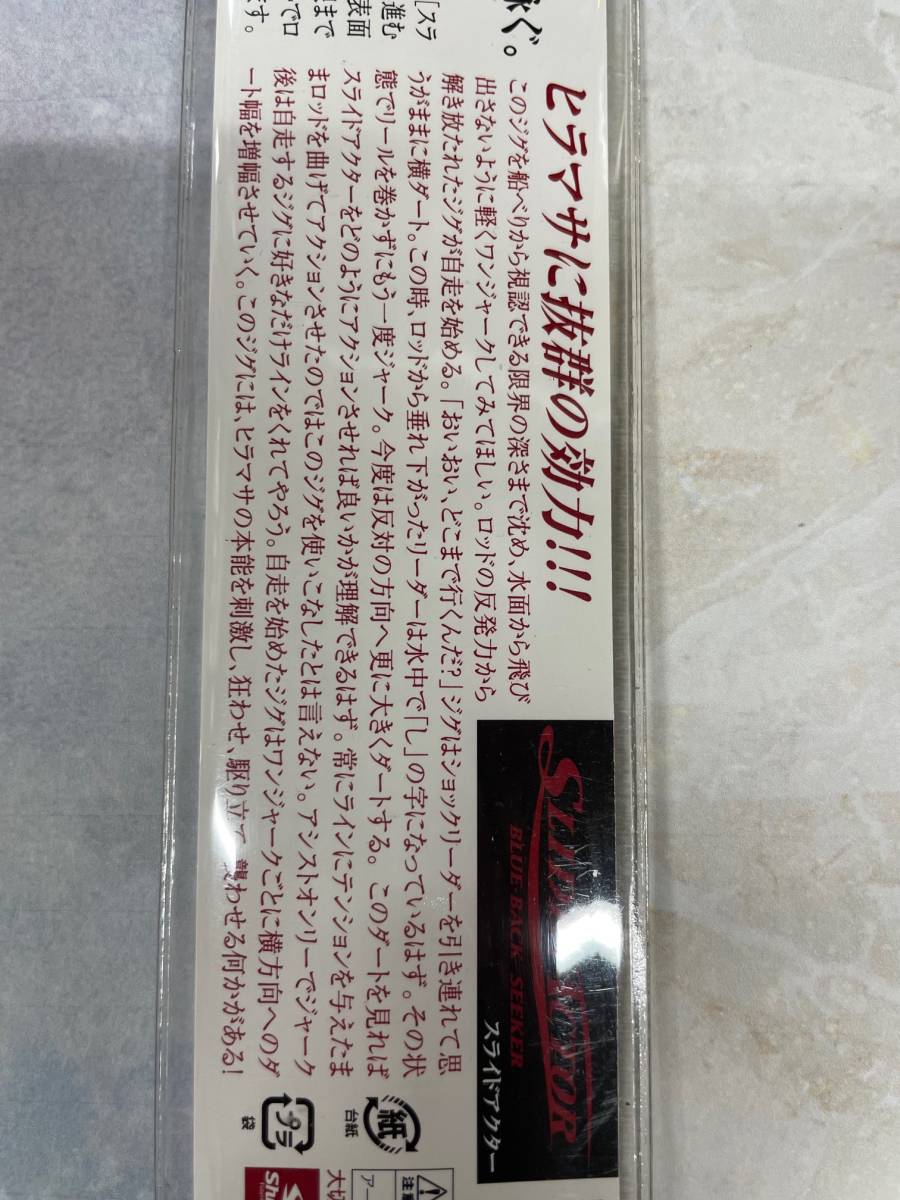 [スラ
進む
表面
まで
でロ
ます。
泳ぐ。
ヒラマサに抜群の効力!!!
このジグを船べりから視認できる限界の深さまで沈め、水面から飛び
出さないように軽くワンジャークしてみてほしい。ロッドの反発力から
解き放たれたジグが自走を始める。「おいおい、どこまで行くんだ?」ジグはショックリーダーを引き連れて思
うがままに横ダート。この時、ロッドから垂れ下がったリーダーは水中で「し」の字になっているはず。その状
態でリールを巻かずにもう一度ジャーク。今度は反対の方向へ更に大きくダートする。このダートを見れば
スライドアクターをどのようにアクションさせれば良いかが理解できるはず。常にラインにテンションを与えたま
まロッドを曲げてアクションさせたのではこのジグを使いこなしたとは言えない。アシストオンリーでジャーク
後は自走するジグに好きなだけラインをくれてやろう。自走を始めたジグはワンジャークごとに横方向へのダ
ート幅を増幅させていく。このジグには、ヒラマサの本能を刺激し、狂わせ、駆り立て、襲わせる何かがある!
SLIDE ACTOR
BLUE-BACK SEEKER
スライドアクター
紙
台紙
プラ
袋
注意
大切
アー